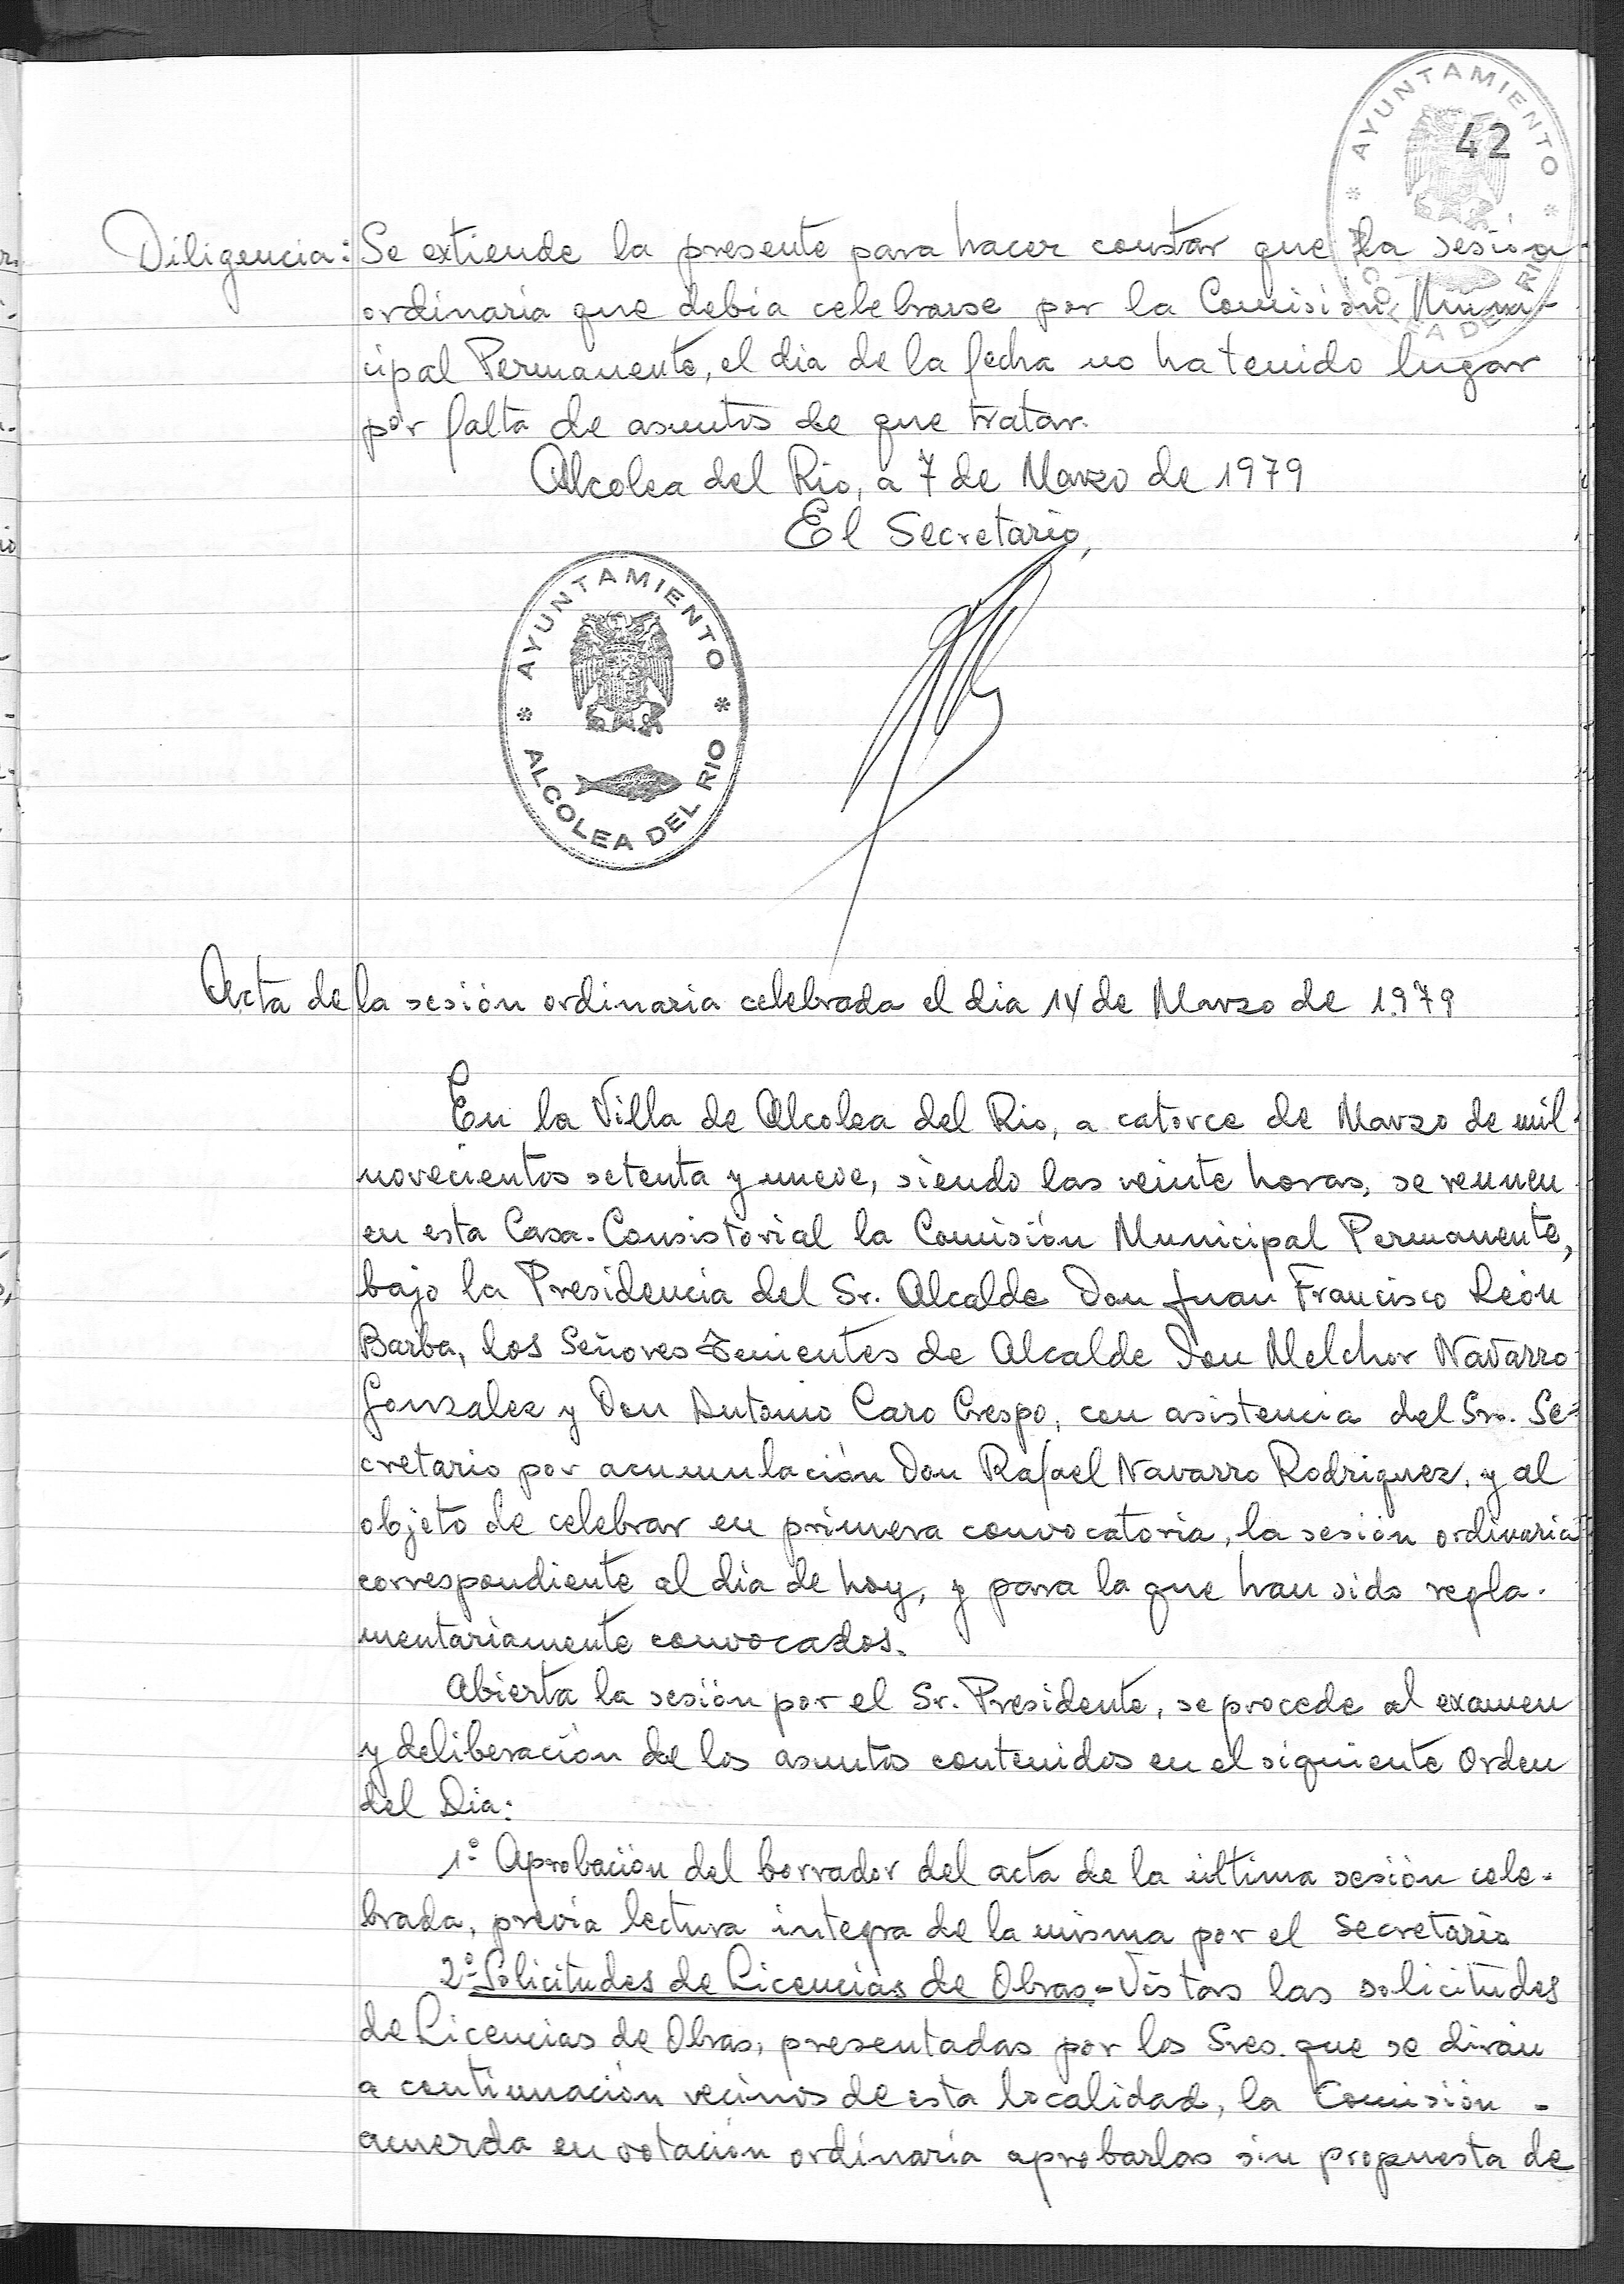 AYUNTAMIENTO
42
Diligencia: Se extiende la presente para hacer constar que la sesión
ordinaria que debia celebrarse por la Comisión Muni-
cipal Permanente, el dia de la fecha no ha tenido lugar
por falta de asuntos de que tratar.
Alcolea del Rio, a 7 de Marzo de 1979
El Secretario,
AYUNTAMIENTO
* *
ALCOLEA DEL RIO
Acta de la sesión ordinaria celebrada el dia 14 de Marzo de 1.979
En la Villa de Alcolea del Rio, a catorce de Marzo de mil
novecientos setenta y nueve, siendo las veinte horas, se reunen
en esta Casa-Consistorial la Comisión Municipal Permanente,
bajo la Presidencia del Sr. Alcalde Don Juan Francisco León
Barba, los Señores Tenientes de Alcalde Don Melchor Navarro
Gonzalez y Don Antonio Caro Crespo, con asistencia del Sr. Se-
cretario por acumulación Don Rafael Navarro Rodriguez, y al
objeto de celebrar en primera convocatoria, la sesión ordinaria
correspondiente al dia de hoy, y para la que han sido regla-
mentariamente convocados.
Abierta la sesión por el Sr. Presidente, se procede al examen
y deliberación de los asuntos contenidos en el siguiente Orden
del Dia:
1º Aprobación del borrador del acta de la última sesión cele-
brada, previa lectura integra de la misma por el Secretario
2º Solicitudes de Licencias de Obras-Vistas las solicitudes
de Licencias de Obras, presentadas por los Sres. que se dirán
a continuación vecinos de esta localidad, la Comisión -
acuerda en votación ordinaria aprobarlas sin propuesta de